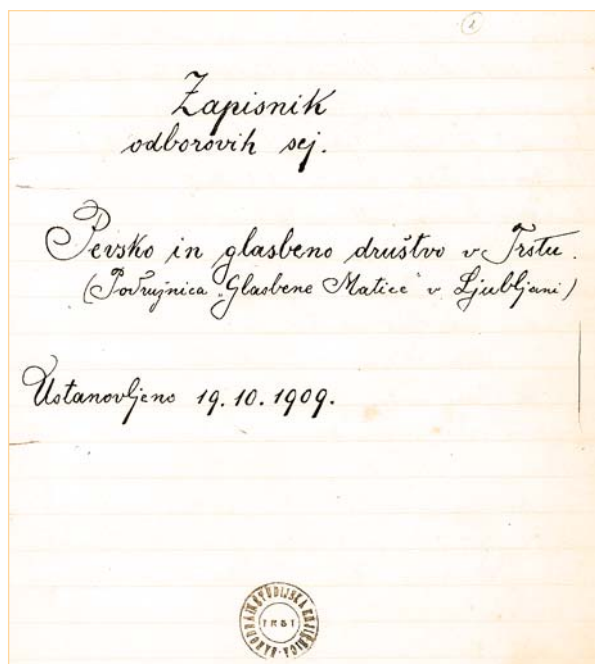 1
Zapisnik
odborovih sej.
Pevsko in glasbeno društvo v Trstu.
(Podružnica „Glasbene Matice" v Ljubljani)
Ustanovljeno 19. 10. 1909.
NARODNA IN ŠTUDIJSKA KNJIŽNICA
TRST